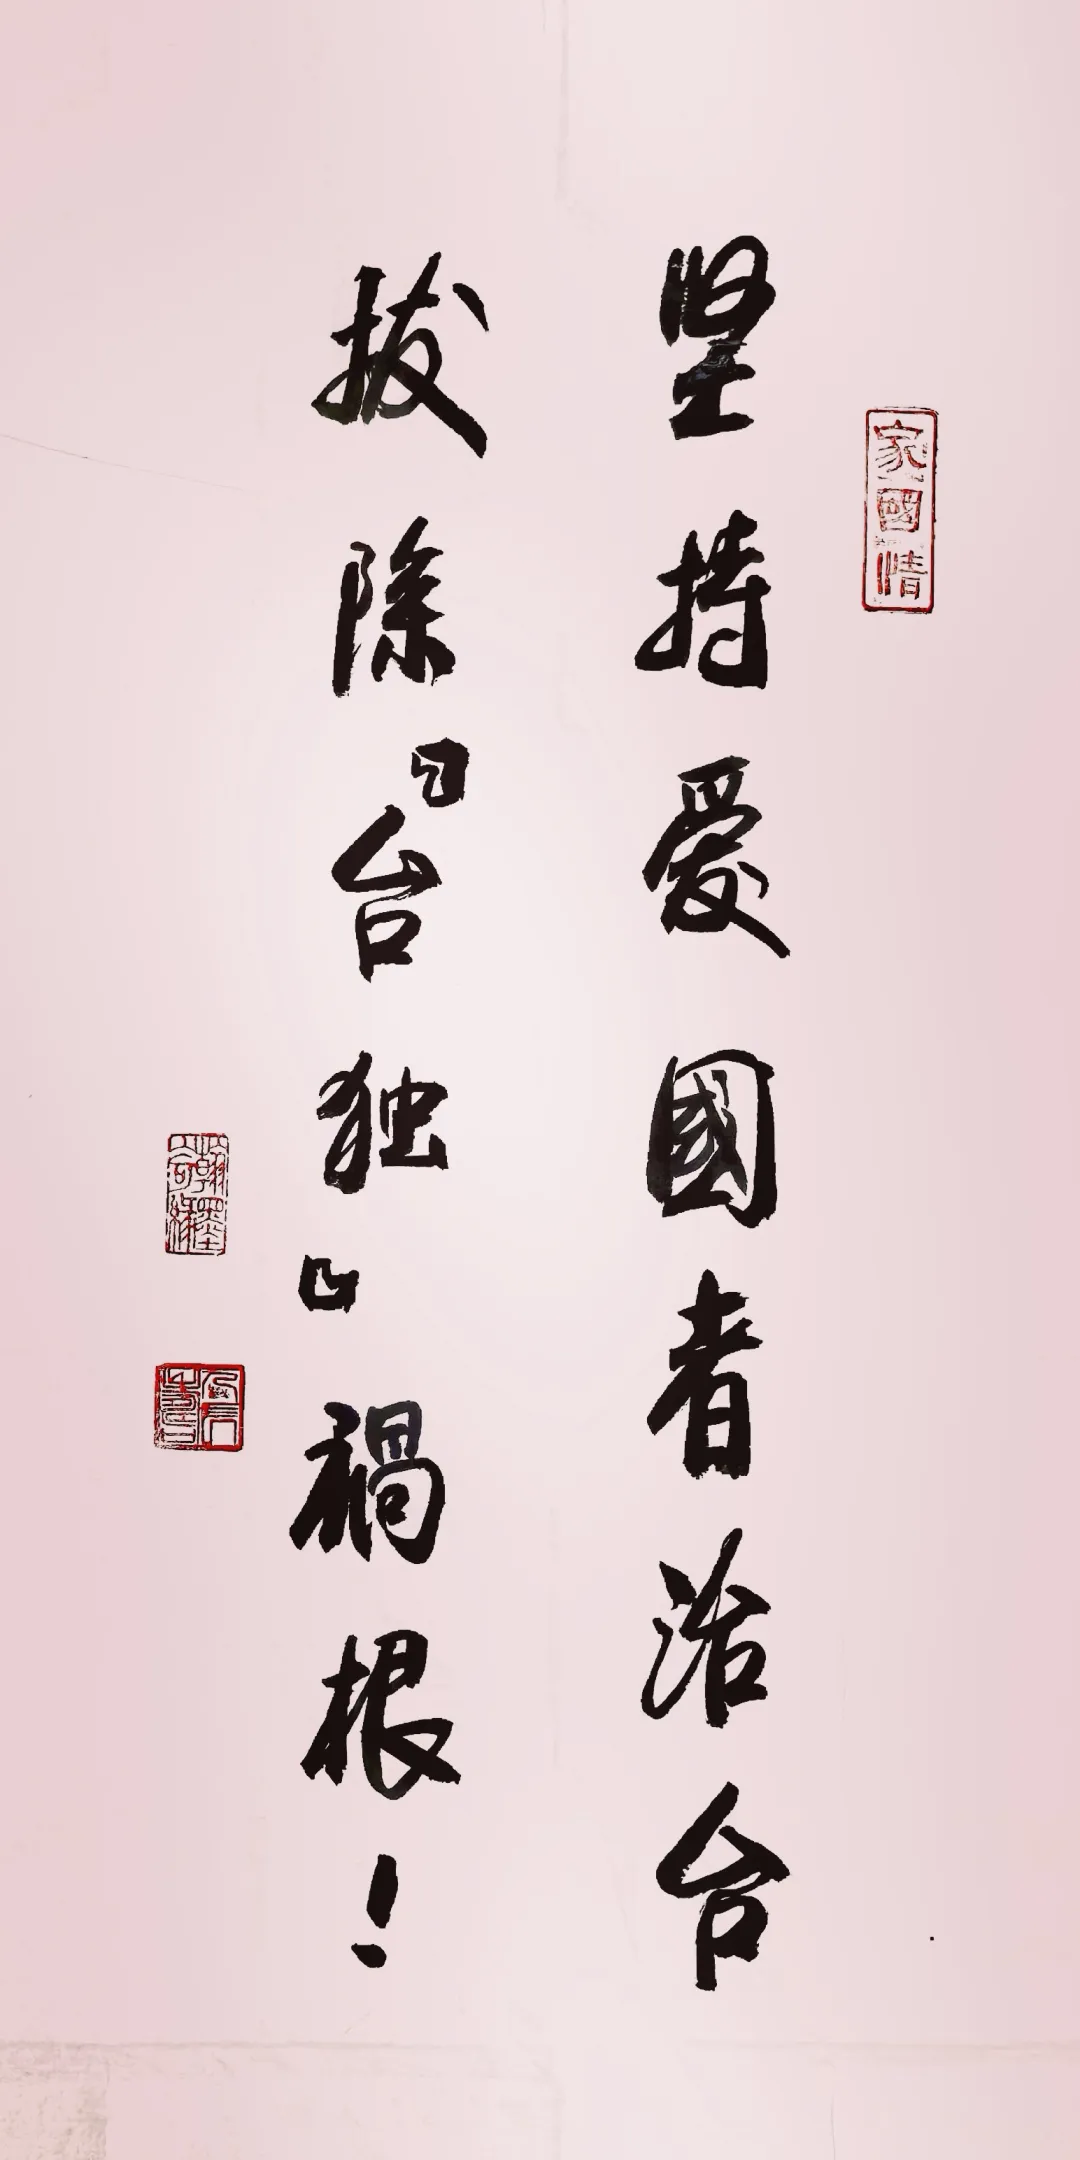 坚持爱國者治台
拔除『台独』禍根！
家國情
翰墨